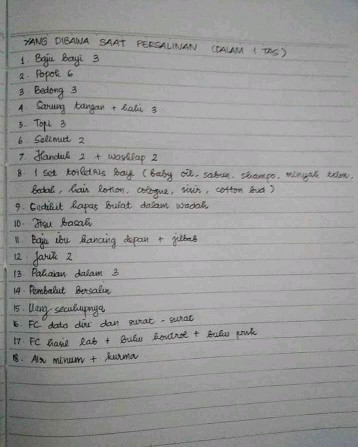 YANG DIBAWA SAAT PERSALINAN (DALAM 1 TAS)
1. Baju bayi 3
2. Popok 6
3. Bedong 3
4. Sarung tangan + kaki 3
5. Topi 3
6. Selimut 2
7. Handuk 2 + washlap 2
8. 1 set toiletris bayi (baby oil, sabun, shampo, minyak telon,
bedak, hair lotion, cologne, sisir, cotton bud)
9. Sedikit kapas bulat dalam wadah
10. Tisu basah
11. Baju ibu kancing depan + jilbab
12. Jarik 2
13. Pakaian dalam 3
14. Pembalut bersalin
15. Uang secukupnya
16. FC data diri dan surat-surat
17. FC hasil lab + buku kontrol + buku pink
18. Air minum + kurma